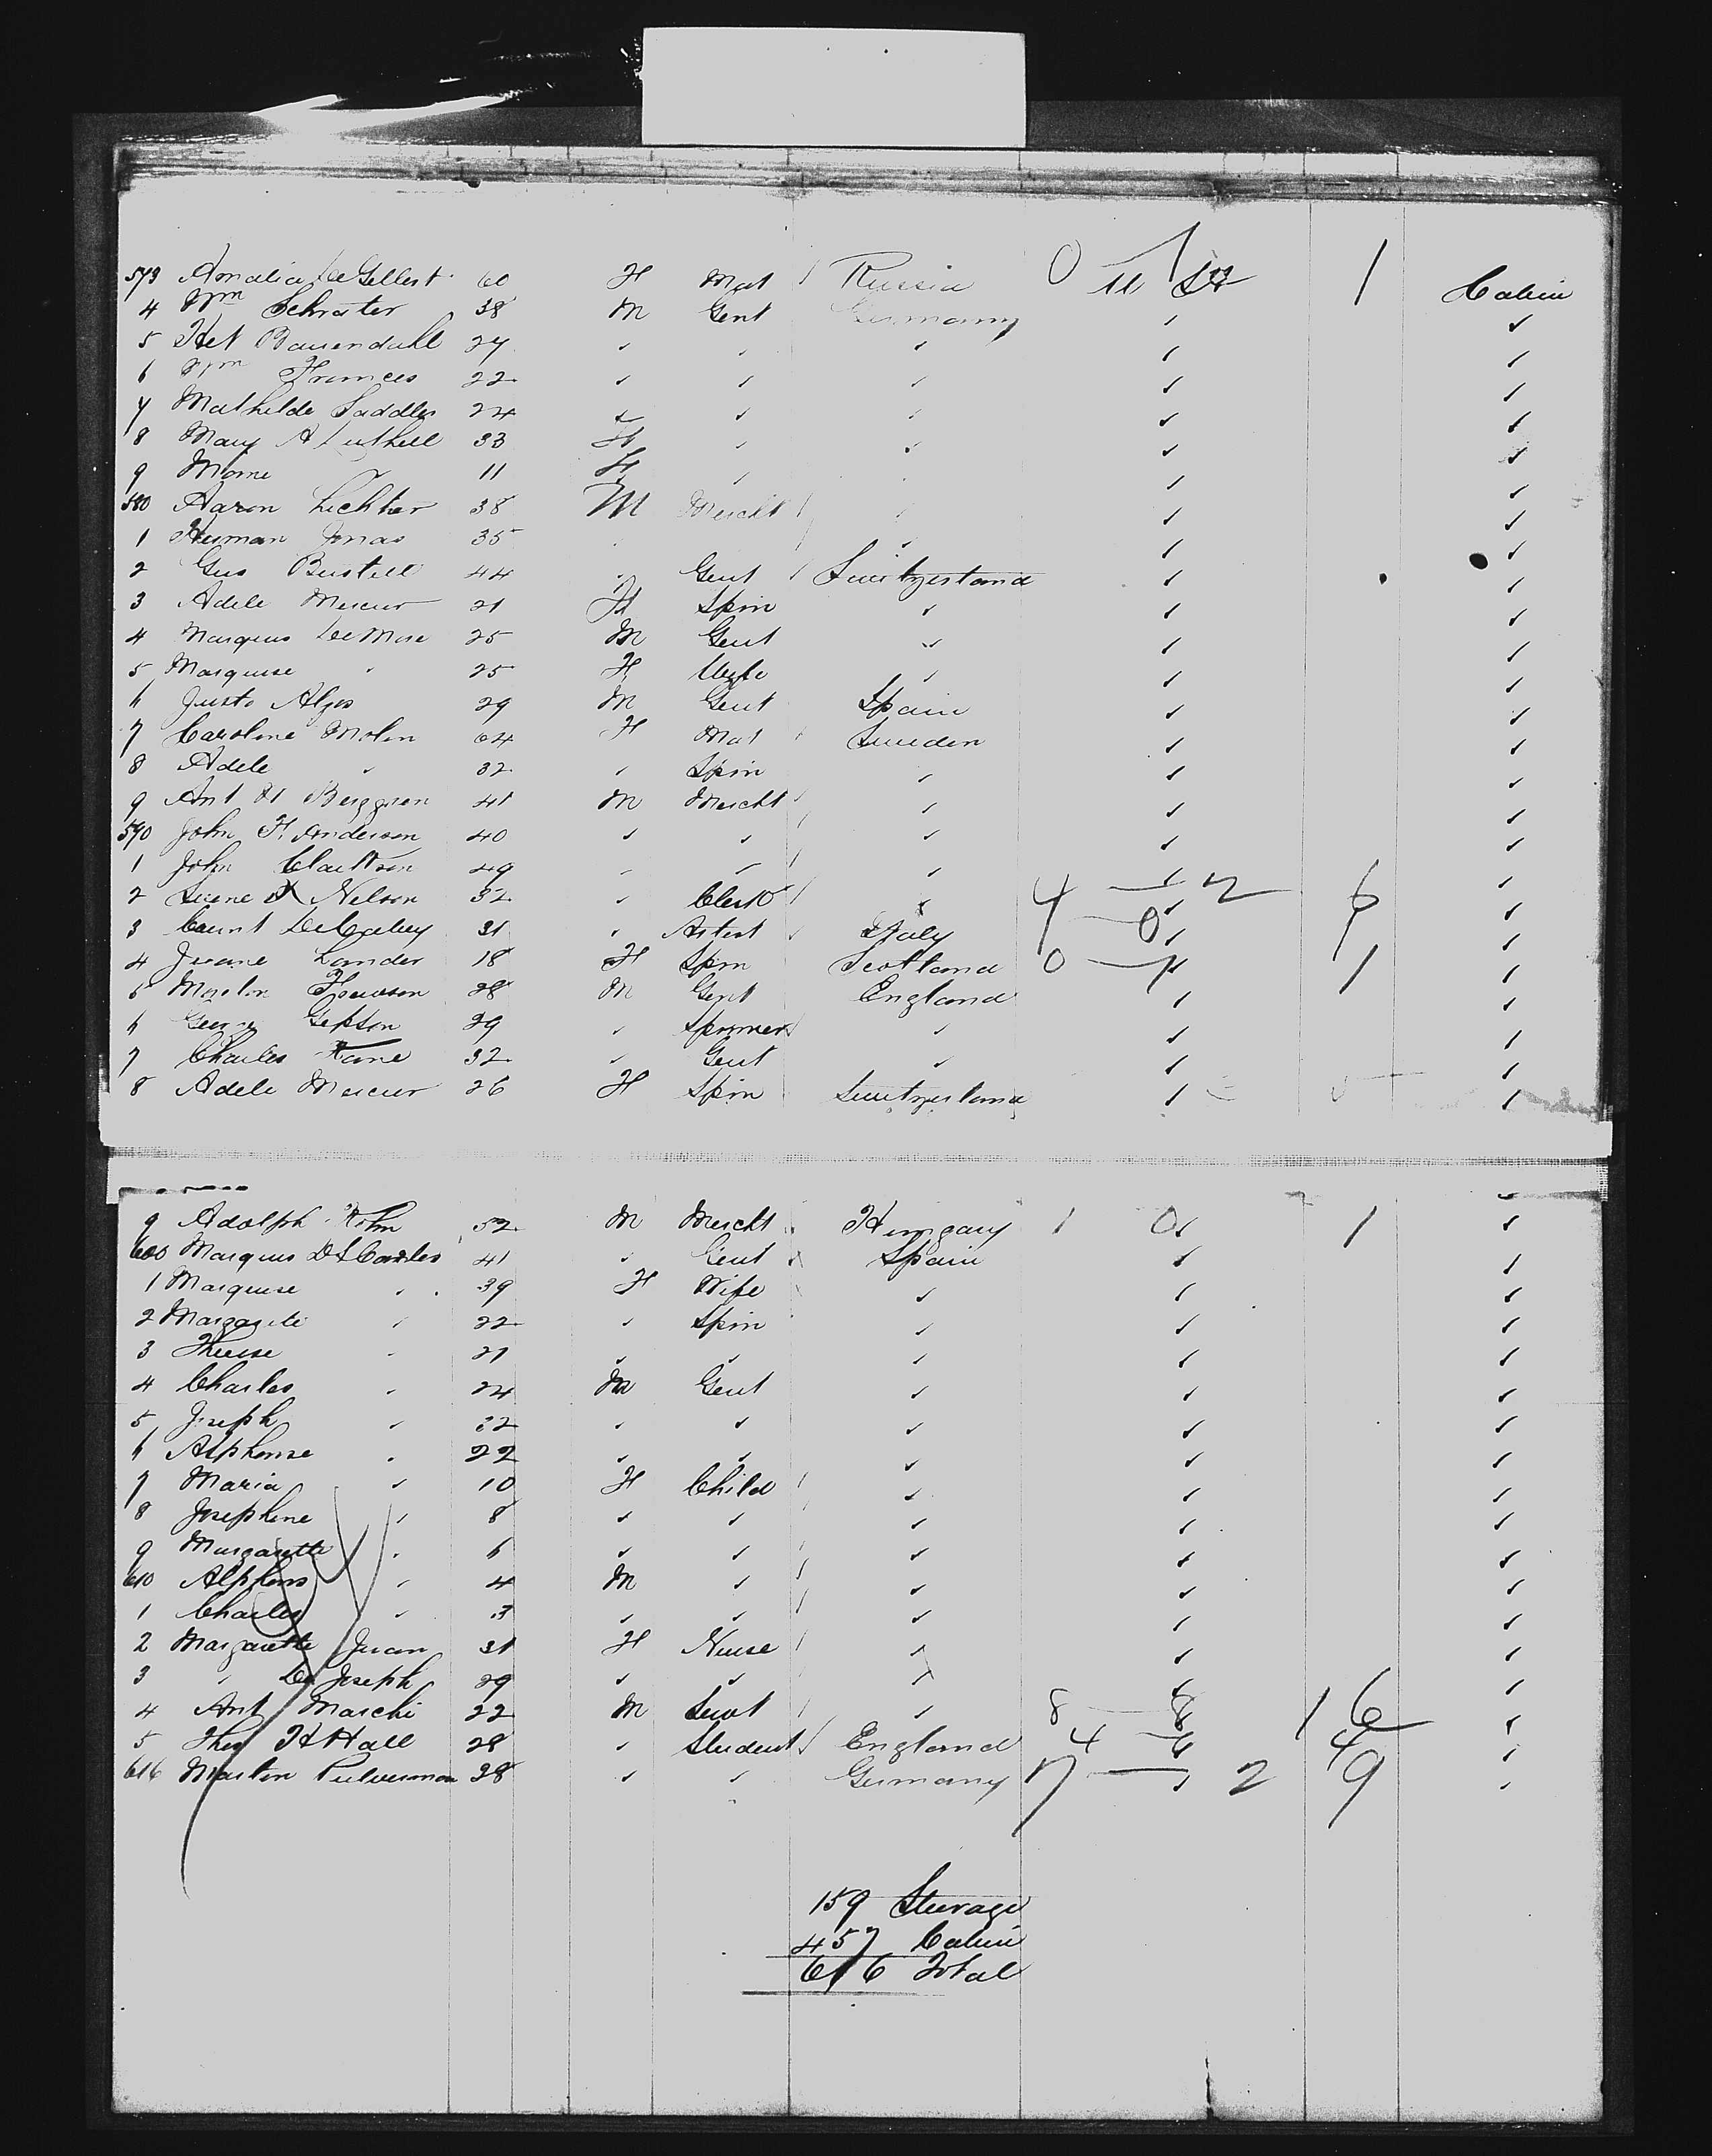 573 Amalia De Gellert 60 F Mat Russia 0 U St 1 1 Cabin
4 Wm Schroter 38 M Gent Germany ✓ ✓
5 Het Bauendahl 27 ✓ ✓ ✓ ✓ ✓
6 Wm Frances 22 ✓ ✓ ✓ ✓ ✓
7 Mathilde Saddler 24 ✓ ✓ ✓ ✓
8 Mary A Tuthill 33 F ✓ ✓ ✓ ✓
9 Mome 11 F ✓ ✓ ✓
580 Aaron Lichter 38 M Mercht ✓ ✓ ✓
1 Herman Jonas 35 ✓ ✓ ✓
2 Gus Bustell 44 Gent Switzerland ✓ ✓
3 Adele Mercur 21 F Spin ✓ ✓ ✓
4 Marquis De More 25 M Gent ✓ ✓ ✓
5 Marquise " 25 F Wife ✓ ✓ ✓
6 Justo Algos 29 M Gent Spain ✓ ✓
7 Caroline Molin 64 F Mat Sweden ✓ ✓
8 Adele " 32 ✓ Spin ✓ ✓ ✓
9 Ant H Berggren 41 M Mercht ✓ ✓ ✓
590 John F. Anderson 40 ✓ ✓ ✓ ✓ ✓
1 John 49 ✓ ✓ ✓ ✓ ✓
2 Nelson 32 ✓ Clerk ✓ 4 — 2 6 ✓
3 Count 31 ✓ Artist Italy 0 ✓
4 Lander 18 F Spin Scotland 0 — 1 1 ✓
5 28 M Gent England ✓ ✓
6 George Gepson 29 ✓ ✓ ✓ ✓
7 Charles Kane 32 ✓ Gent ✓ ✓ ✓
8 Adele Mercur 26 F Spin Switzerland ✓ ✓
9 Adolph Kohn 52 M Mercht Hungary 1 0 1 ✓
600 Marquis 41 ✓ Gent Spain ✓ ✓
1 Marquise " 39 F Wife ✓ ✓ ✓
2 Margarete " 22 ✓ Spin ✓ ✓ ✓
3 Therese " 21 ✓ ✓ ✓ ✓ ✓
4 Charles " 24 M Gent ✓ ✓ ✓
5 Joseph " 22 ✓ ✓ ✓ ✓ ✓
6 Alphonse " 22 ✓ ✓ ✓ ✓ ✓
7 Maria " 10 F Child ✓ ✓ ✓
8 Josephine " 8 ✓ ✓ ✓ ✓ ✓
9 Margarette " 6 ✓ ✓ ✓ ✓ ✓
610 Alphons " 4 M ✓ ✓ ✓ ✓
1 Charles " 3 ✓ ✓ ✓ ✓ ✓
2 Margarette Juan 31 F Nurse ✓ ✓ ✓
3 " De Joseph 29 ✓ ✓ ✓ ✓ ✓
4 Ant Marchi 22 M Servt ✓ 8 — 8 16 ✓
5 Thos H Hall 28 ✓ Student England 4 — 4 ✓
616 Martin Pulverman 38 ✓ ✓ Germany 7 — 2 9 ✓
159 Steerage
457 Cabin
616 Total